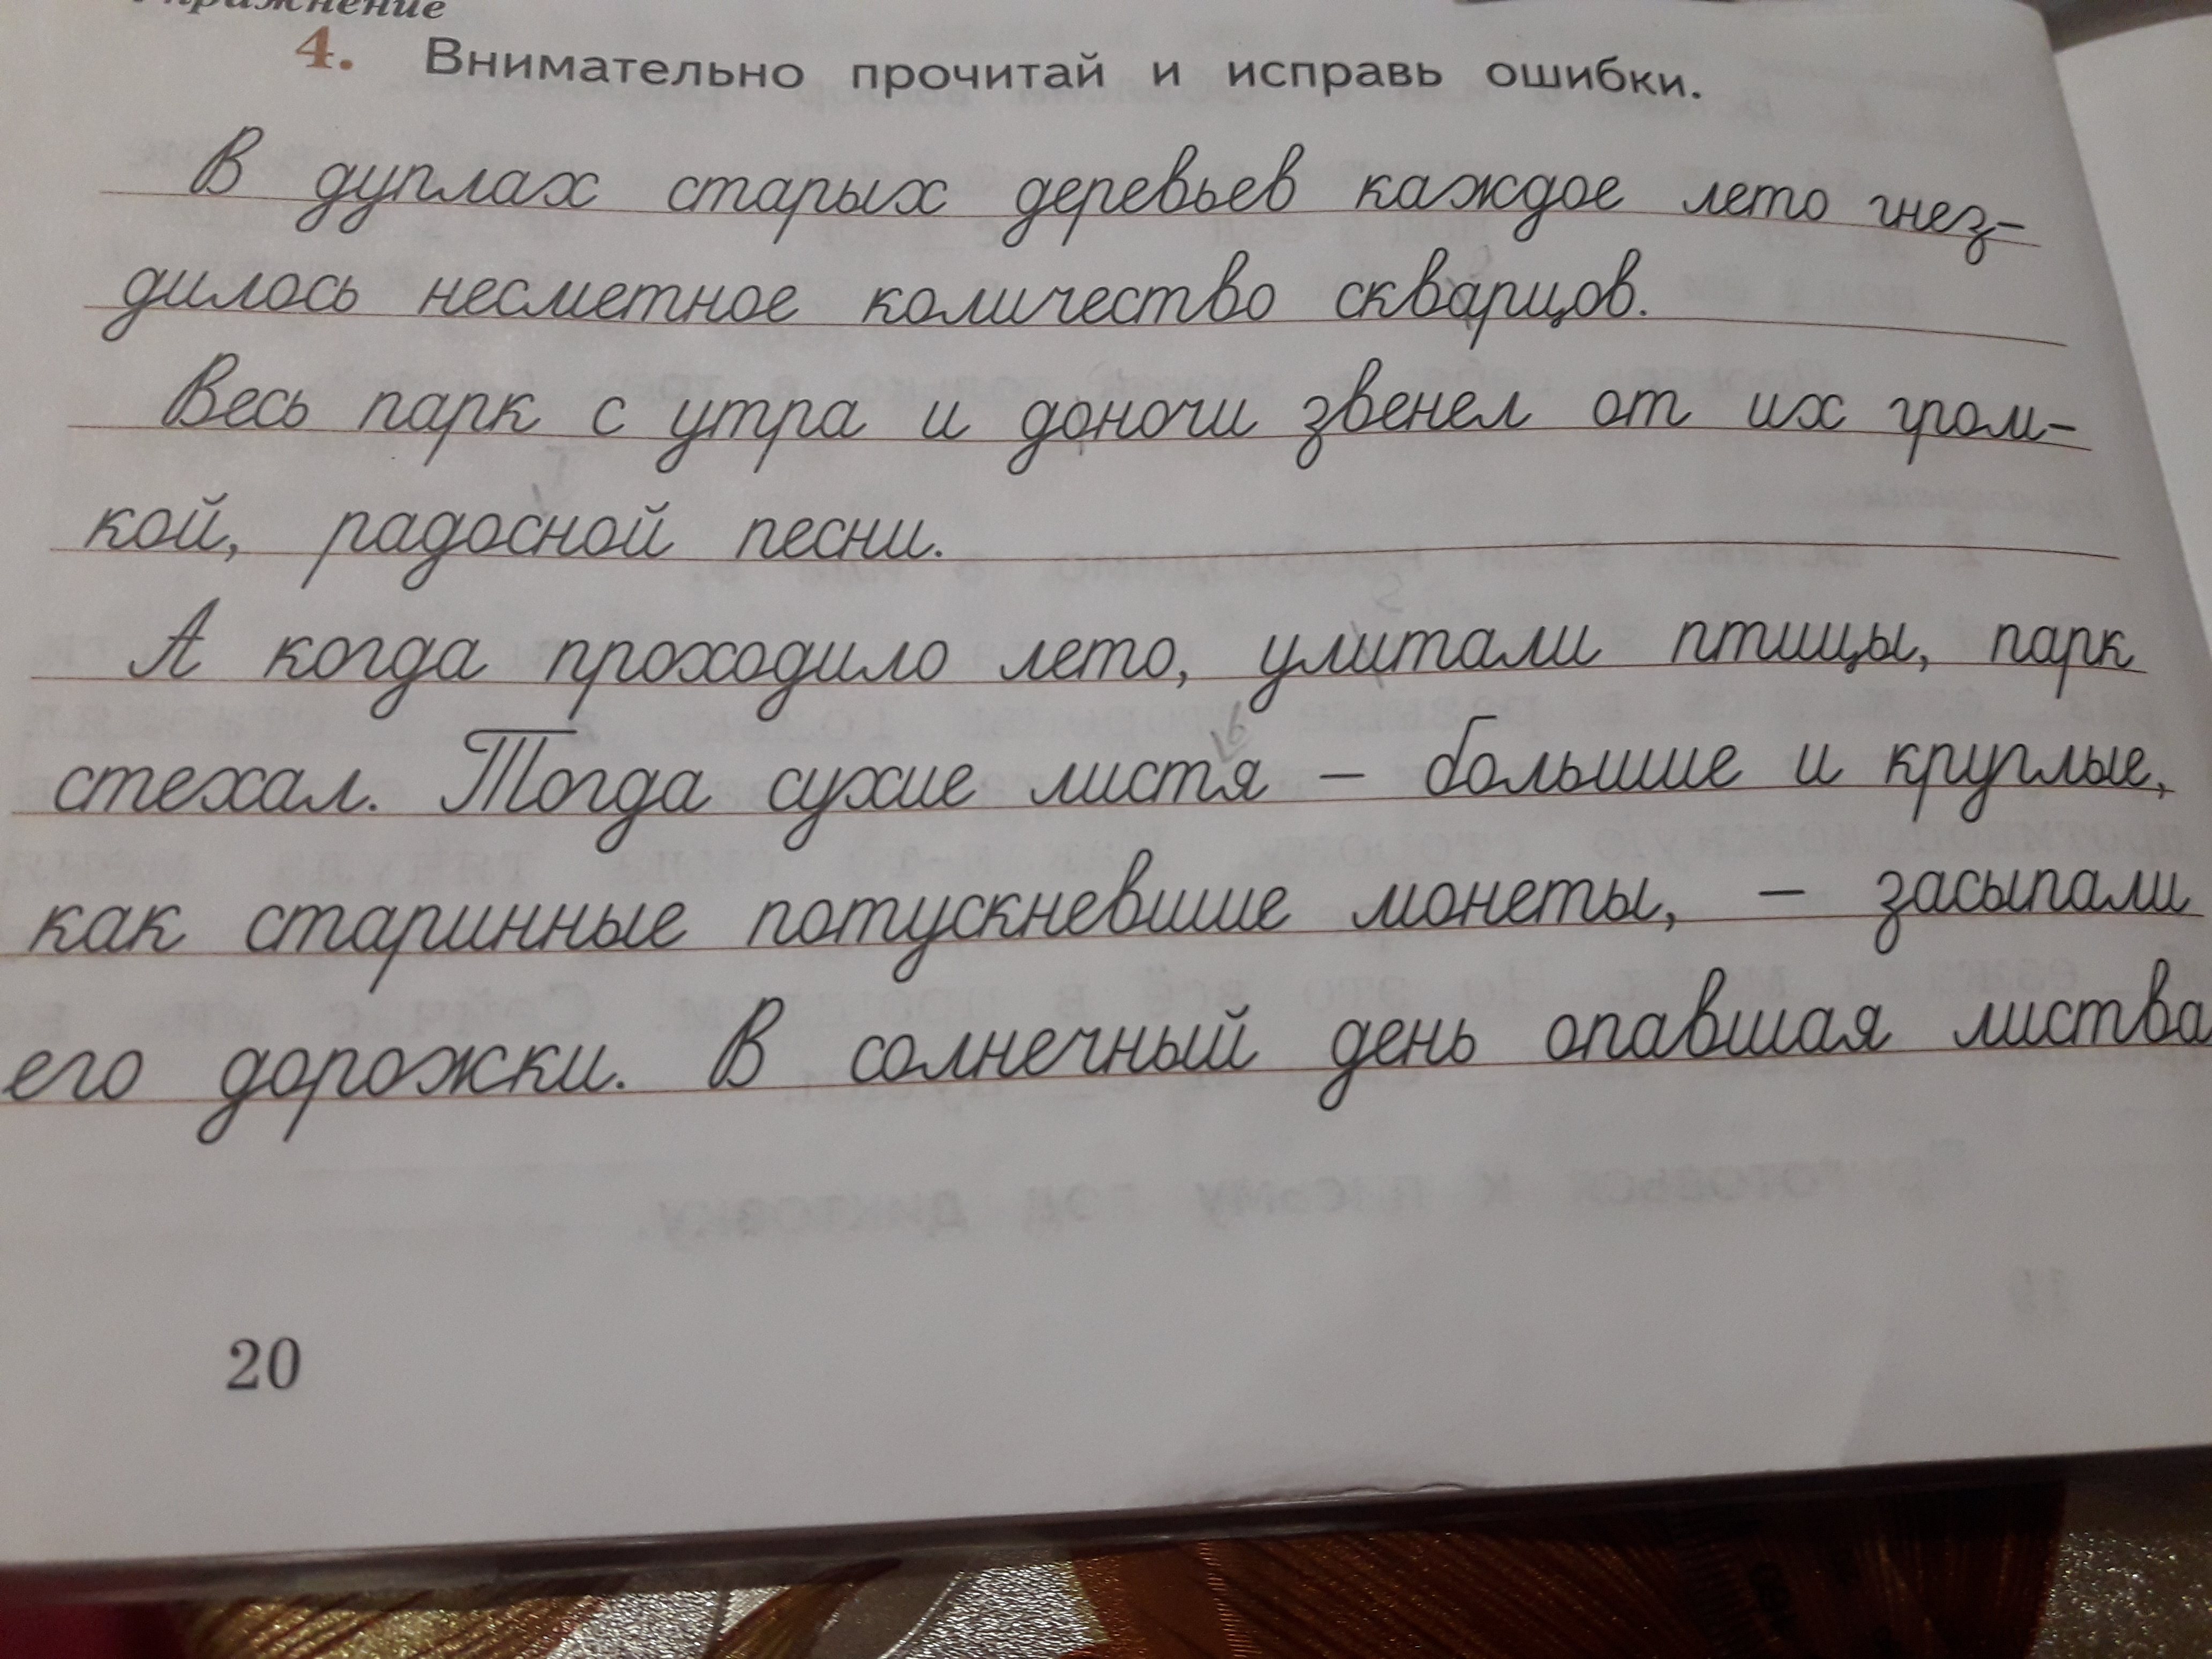 Упражнение
4. Внимательно прочитай и исправь ошибки.
В дуплах старых деревьев каждое лето гнез-
дилось несметное количество скварцов.
Весь парк с утра и доночи звенел от их гром-
кой, радосной песни.
А когда проходило лето, улитали птицы, парк
стехал. Тогда сухие листя – большие и круглые,
как старинные потускневшие монеты, – засыпали
его дорожки. В солнечный день опавшая листва
20